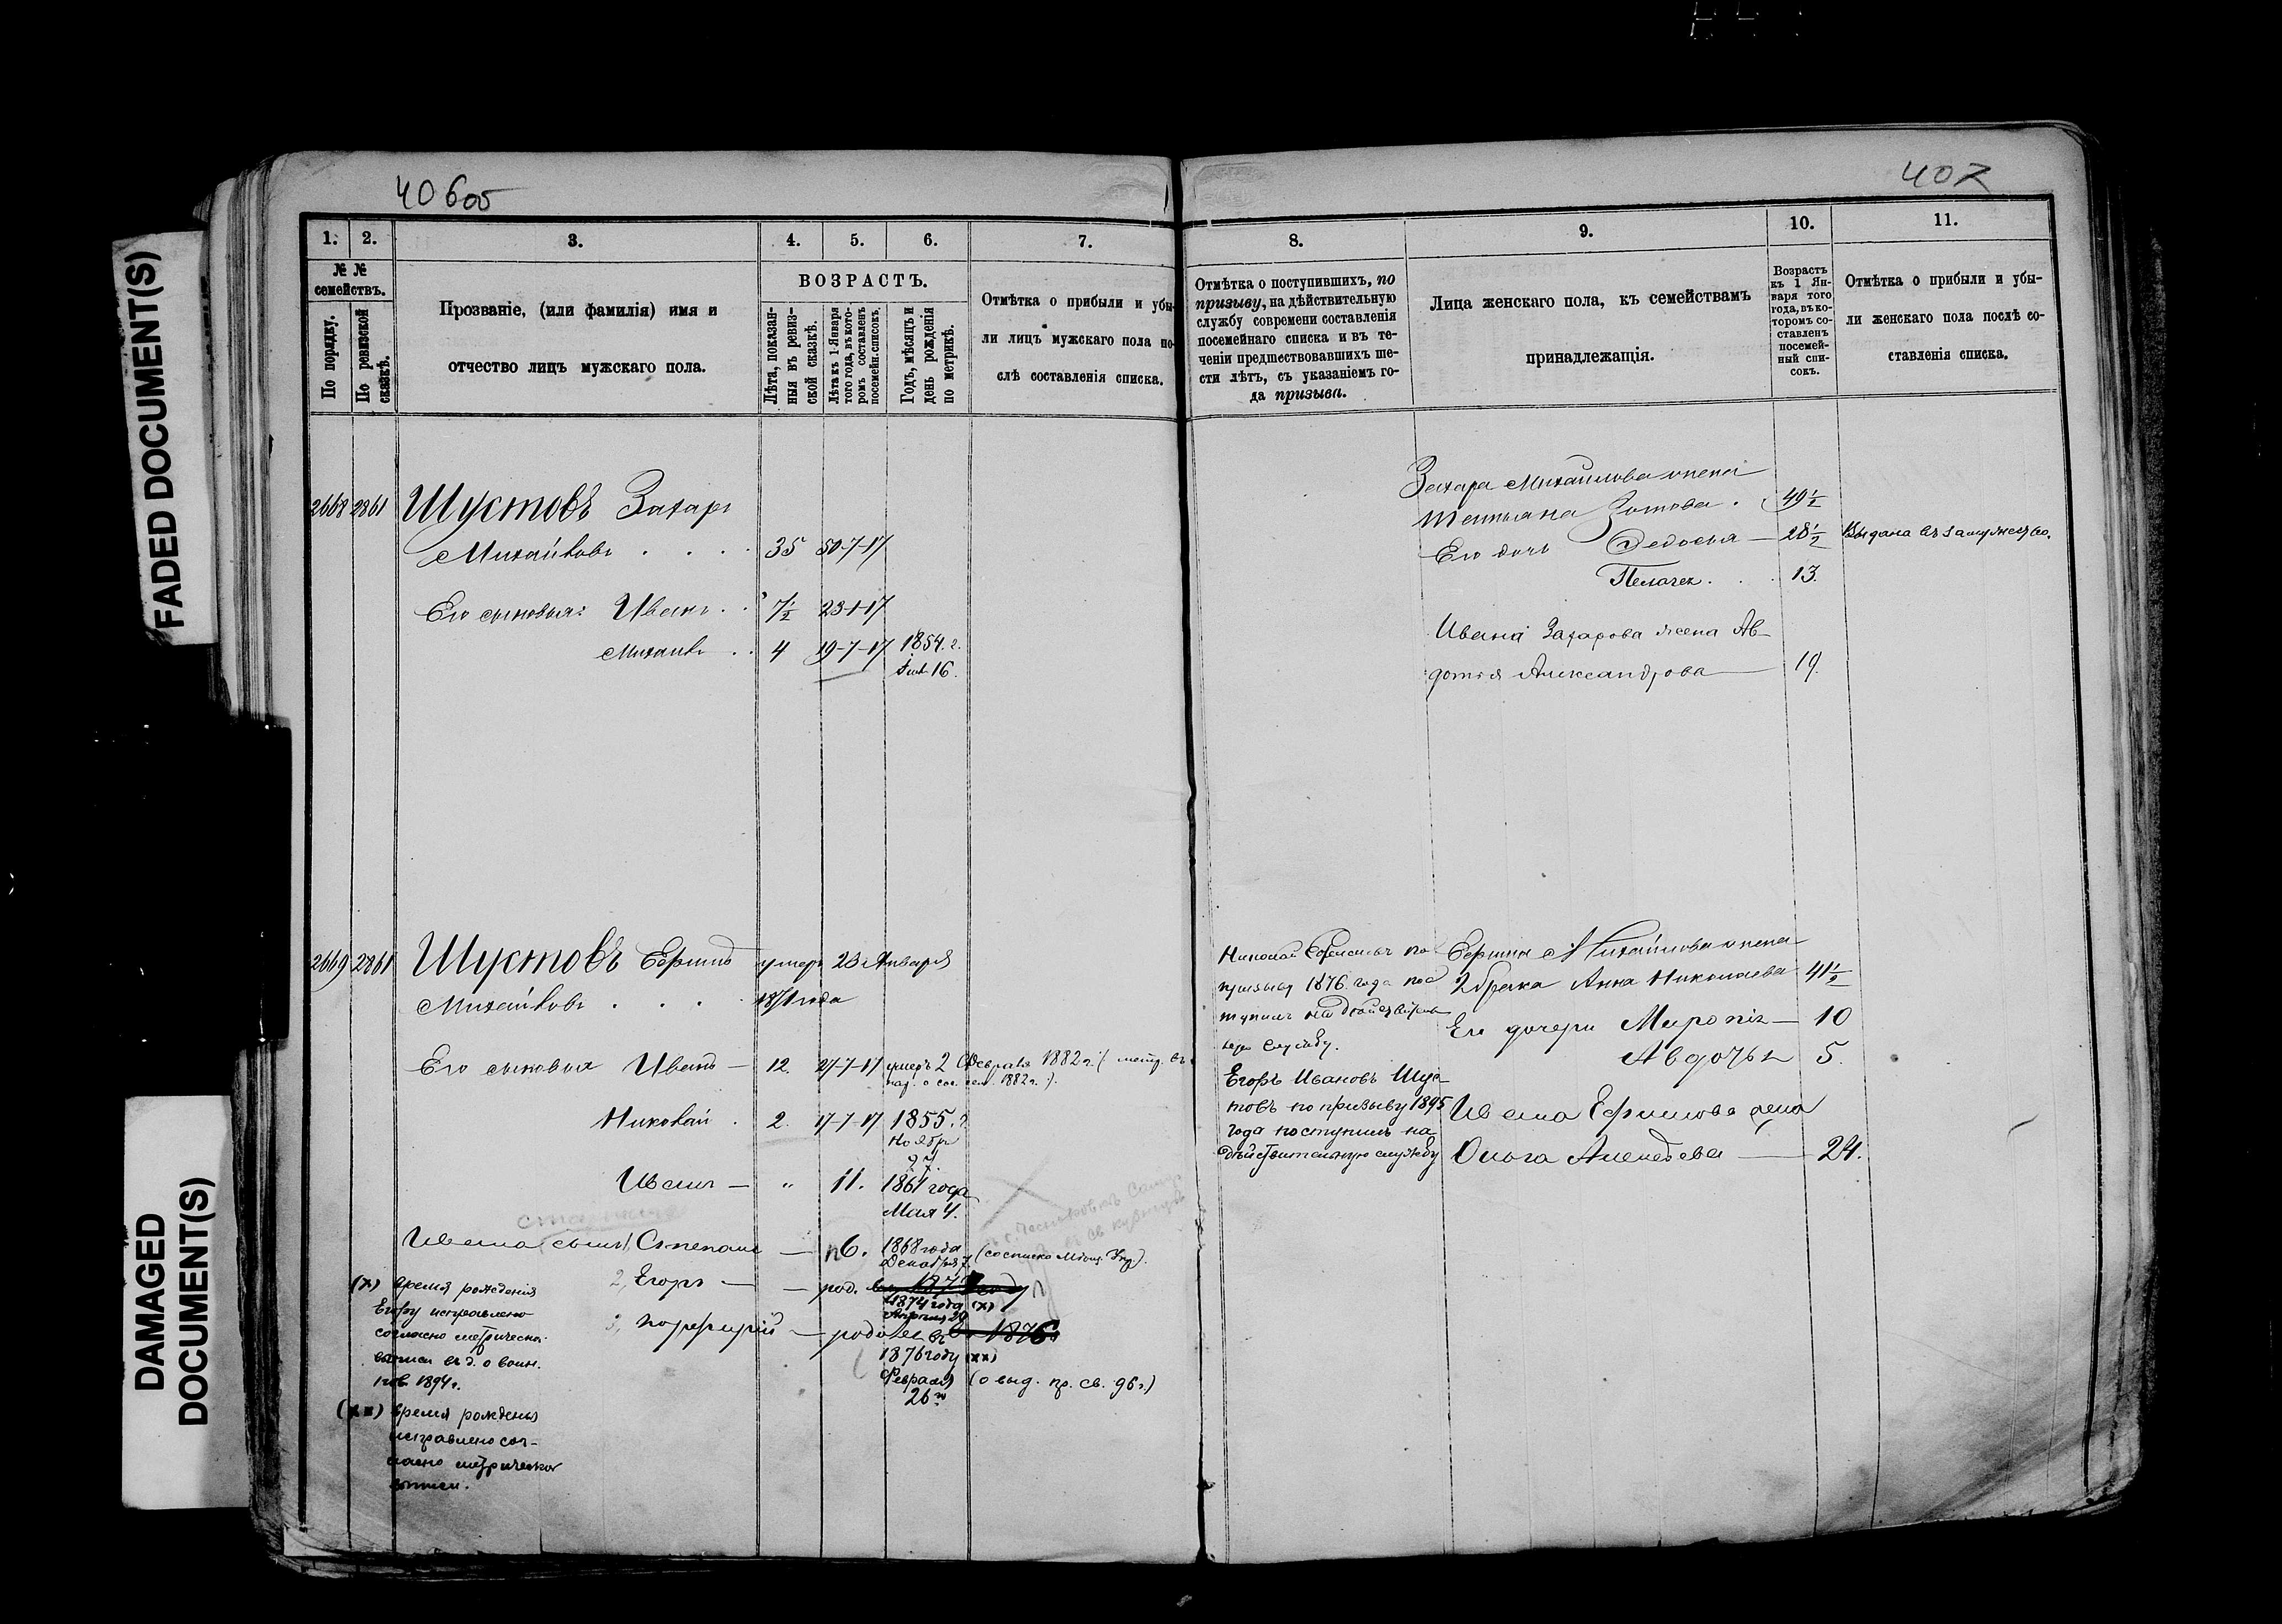 FADED DOCUMENT(S)
DAMAGED
DOCUMENT(S)
406об
407
1. 2. 3. 4. 5. 6. 7.
№ №
семействъ.
По порядку.
По ревизской
сказкѣ.
Прозваніе, (или фамилія) имя и
отчество лицъ мужскаго пола.
ВОЗРАСТЪ.
Лѣта, показан-
ныя въ ревиз-
ской сказкѣ.
Лѣта къ 1 Января
того года, въ кото-
ромъ составленъ
посемейн. списокъ.
Годъ, мѣсяцъ и
день рожденія
по метрикѣ.
Отмѣтка о прибыли и убы-
ли лицъ мужскаго пола по-
слѣ составленія списка.
2668 2861 Шустовъ Захаръ
Михайловъ . . . 35 50-7-17
Его сыновья: Иванъ . . 7½ 23-1-17
Михаилъ . . 4 19-7-17 1854. г.
16.
2669 2861 Шустовъ Ефимъ умеръ 23 Января
Михайловъ . . . 1871 года
Его сыновья Иванъ — 12. 27-7-17 умеръ 2 Февраля 1882 г. (
1882 г. ).
Николай . 2. 17-7-17 1855. г.
Ноябр
27.
Иванъ — „ 11. 1861 года
Мая 4.
Ивана сынъ 1, Степанъ — 6. 1868 года
Декабря
2, Егоръ — — род.
1874 года (х)
Апрѣля 20
3, Порфирій — родился въ 1876
1876 году (хх)
Февраля (о выд. пр. св. 96 г.)
26го
(х) время рожденія
Егору исправлено
согласно метрической
выписи въ д. о воин.
пов. 1894 г.
(хх) время рожденія
исправлено сог-
ласно метрической
выписи.
8. 9. 10. 11.
Отмѣтка о поступившихъ, по
призыву, на дѣйствительную
службу современи составленія
посемейнаго списка и въ те-
ченіи предшествовавшихъ ше-
сти лѣтъ, съ указаніемъ го-
да призыва.
Лица женскаго пола, къ семействамъ
принадлежащія.
Возрастъ
къ 1 Ян-
варя того
года, въ ко-
торомъ со-
ставленъ
посемей-
ный спи-
сокъ.
Отмѣтка о прибыли и убы-
ли женскаго пола послѣ со-
ставленія списка.
Захара Михайлова жена
Татьяна Зотова . 49½
Его дочь Федосья — 28½ Выдана въ замужество.
Пелагея . . . 13.
Ивана Захарова жена Ав-
дотья Александрова — 19.
Николай Ефимовъ по
призыву 1876 года пос
тупилъ на дѣйствитель
ную службу.
Егоръ Ивановъ Шус
товъ по призыву 1895
года поступилъ на
дѣйствительную службу
Ефима Михайлова жена
2 брака Анна Николаева 41½
Его дочери Миропія — 10
Авдотья 5.
Ивана Ефимова жена
Ольга — 24.